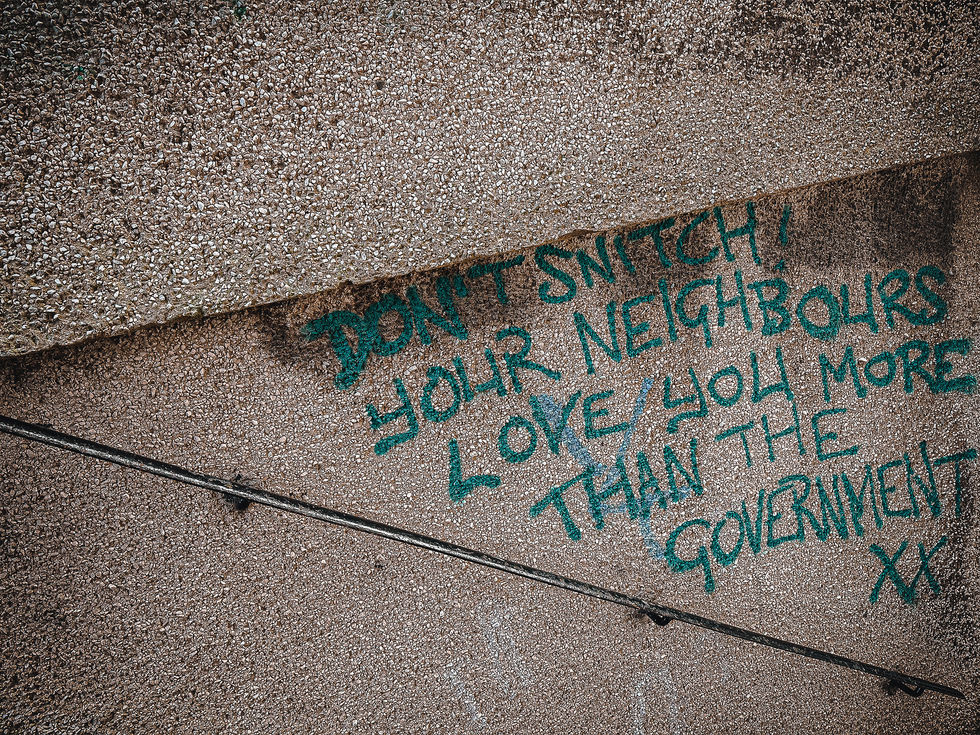 DON'T SNITCH!
YOUR NEIGHBOURS
LOVE YOU MORE
THAN THE
GOVERNMENT
XX